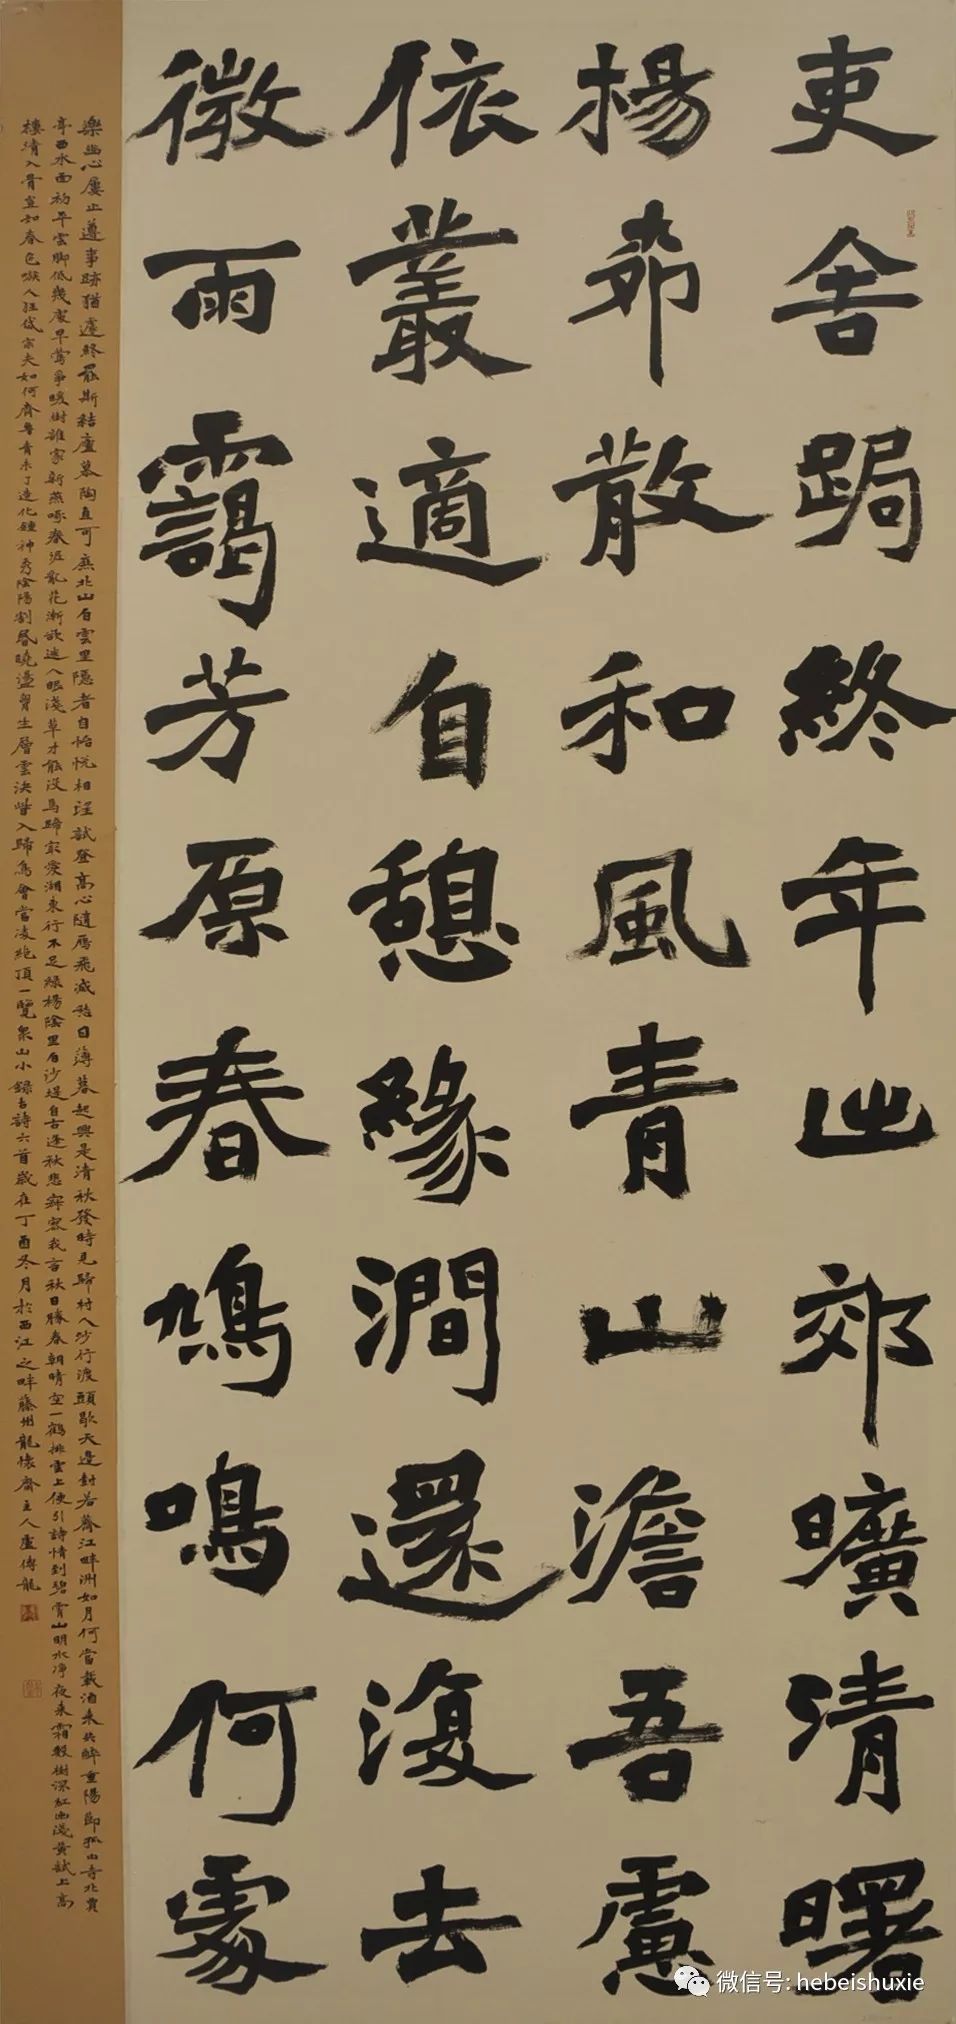 吏舍跼終年出郊曠清曙
楊柳散和風青山澹吾慮
依叢適自憩緣澗還復去
微雨靄芳原春鳩鳴何處
樂幽心屢止遵事跡猶遽終罷斯結廬慕陶直可庶北山白雲里隱者自怡悅相望試登高心隨雁飛滅愁因薄暮起興是清秋發時見歸村人沙行渡頭歇天邊樹若薺江畔洲如月何當載酒來共醉重陽節孤山寺北賈
亭西水面初平雲腳低幾處早鶯爭暖樹誰家新燕啄春泥亂花漸欲迷人眼淺草才能沒馬蹄最愛湖東行不足綠楊陰里白沙堤自古逢秋悲寂寥我言秋日勝春朝晴空一鶴排雲上便引詩情到碧霄山明水淨夜來霜數樹深紅出淺黃試上高
樓清入骨豈如春色嗾人狂岱宗夫如何齊魯青未了造化鍾神秀陰陽割昏曉盪胸生層雲決眥入歸鳥會當凌絕頂一覽眾山小錄古詩六首歲在丁酉冬月於西江之畔藤州龍懷齋主人盧傳龍
微信号: hebeishuxie